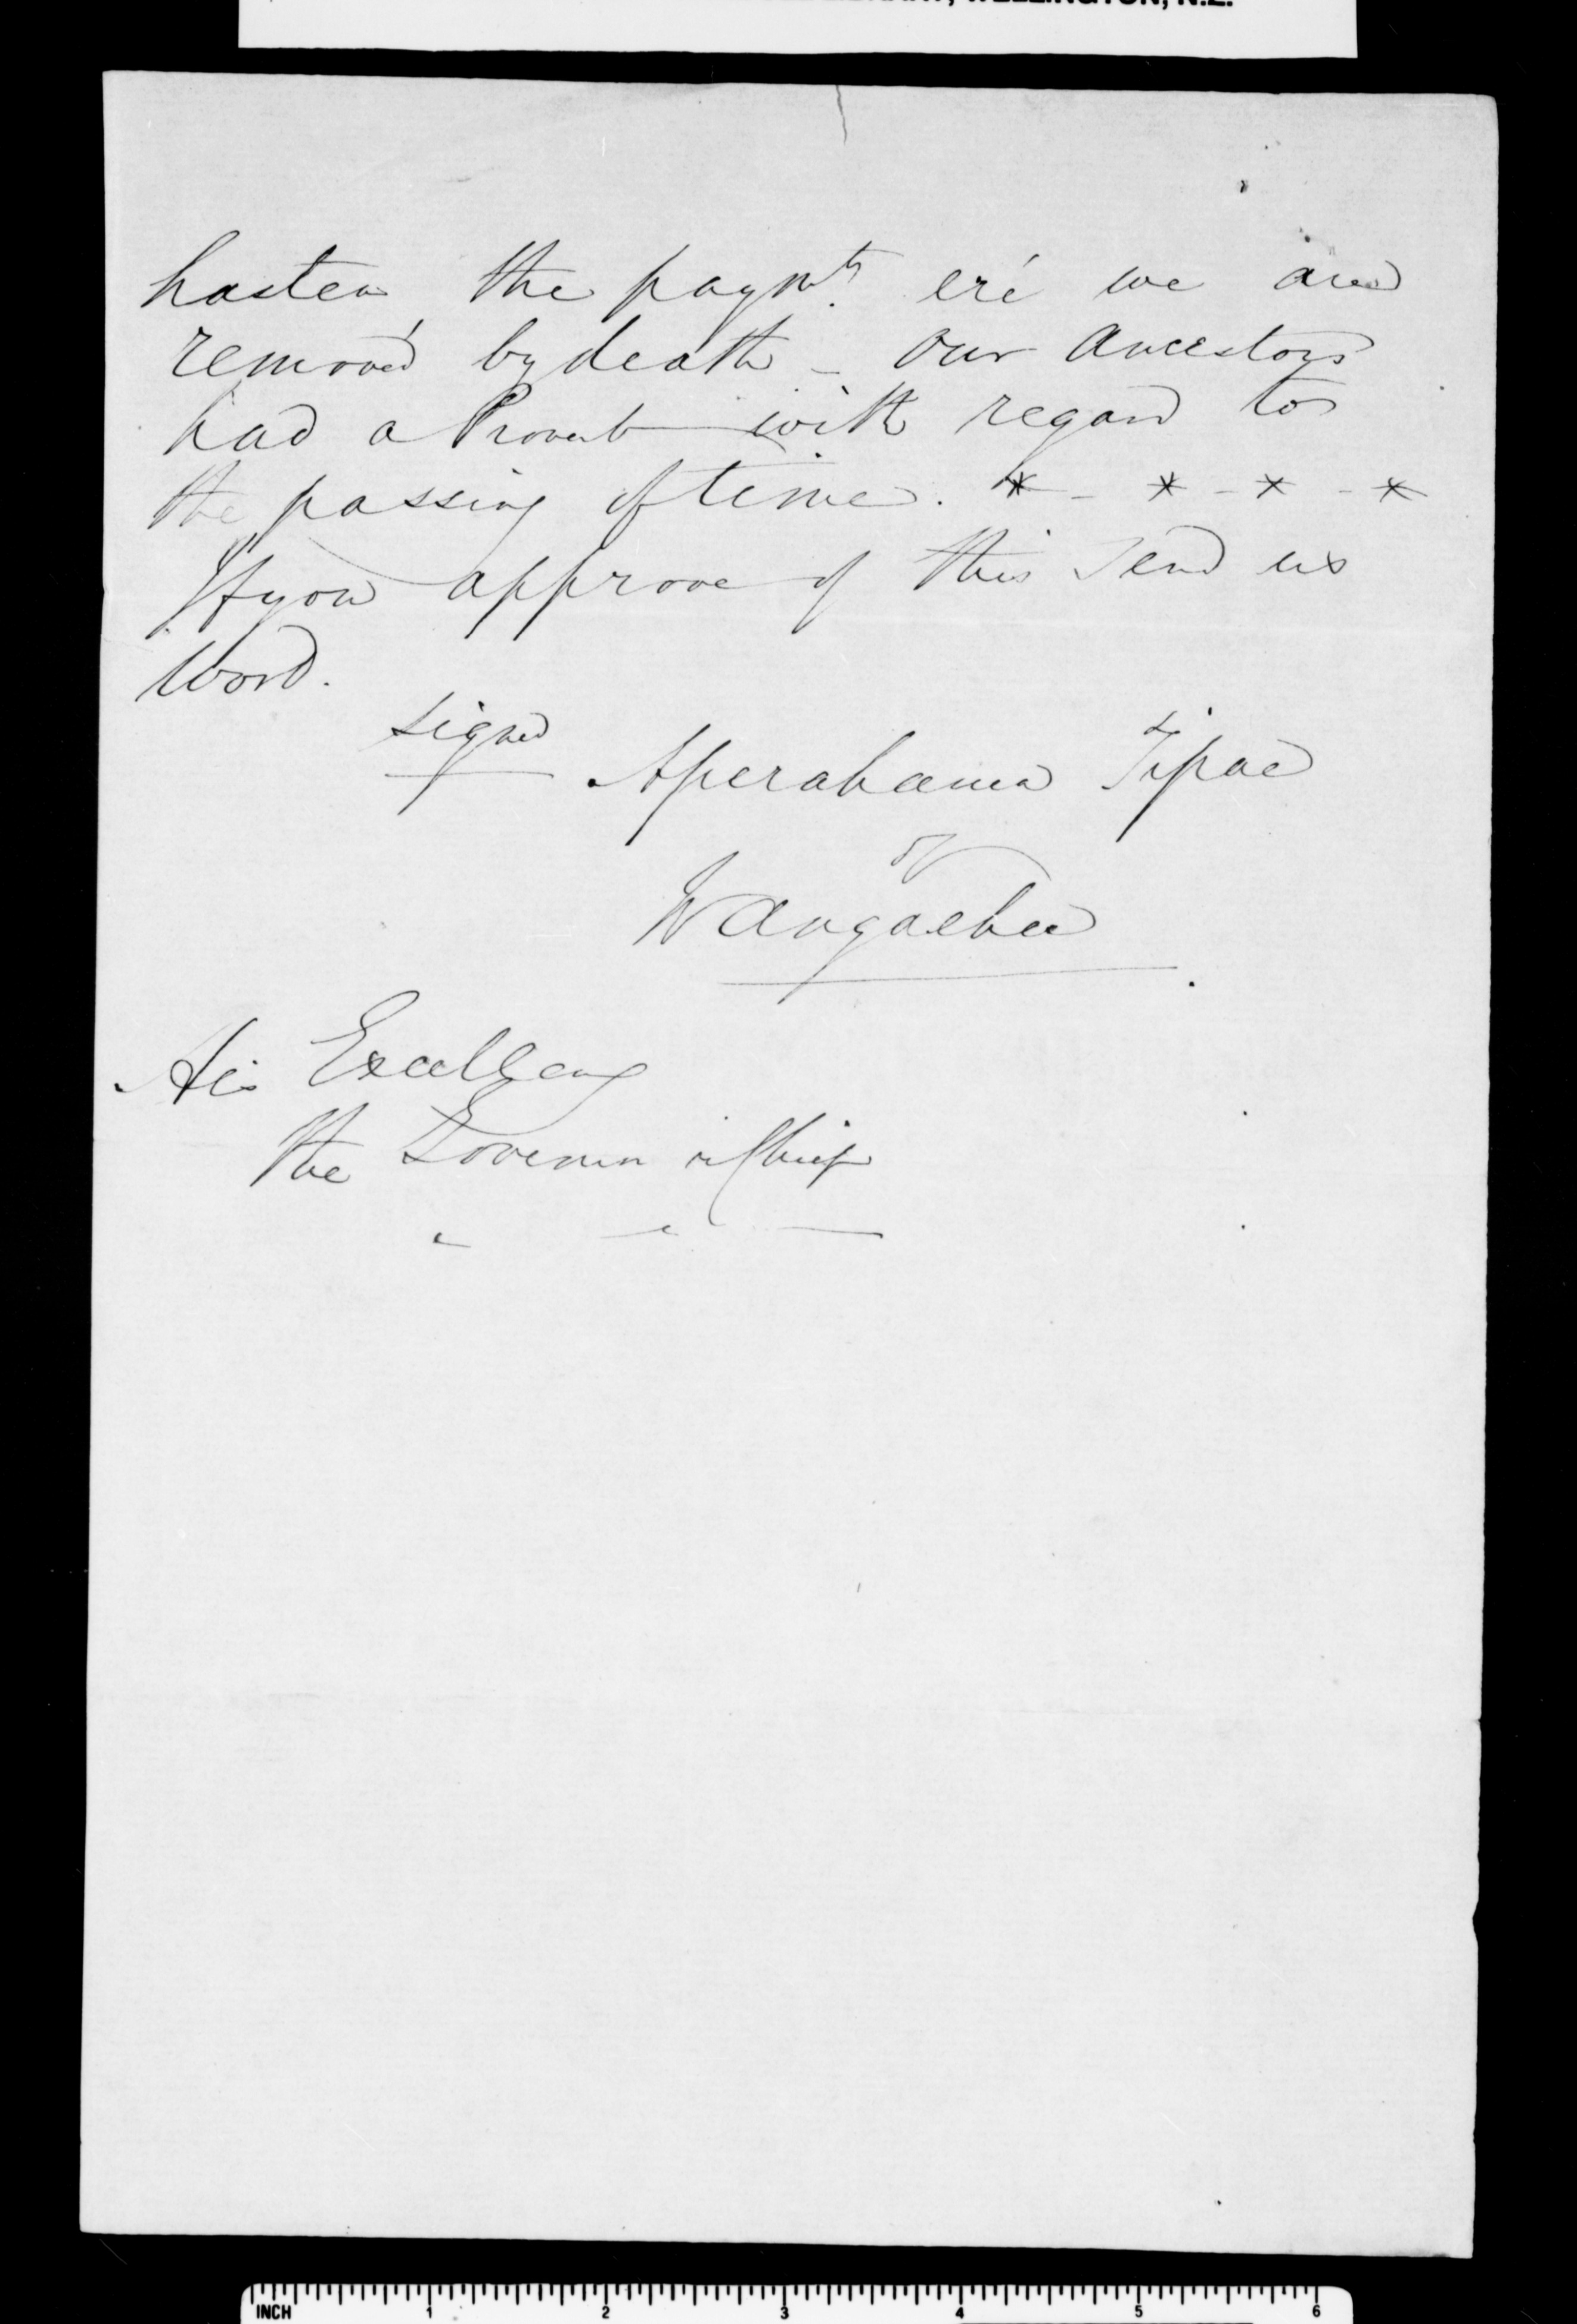 WELLINGTON, N.Z.
hasten the paymts. ere we are
removed by death – our Ancestors
had a Proverb with regard to
the passing of time. * - * - * - *
If you approve of this send us
word.
signed Aperahama Tipae
of
Wangaehu
His Excellency
the Governor in Chief
INCH 1 2 3 4 5 6